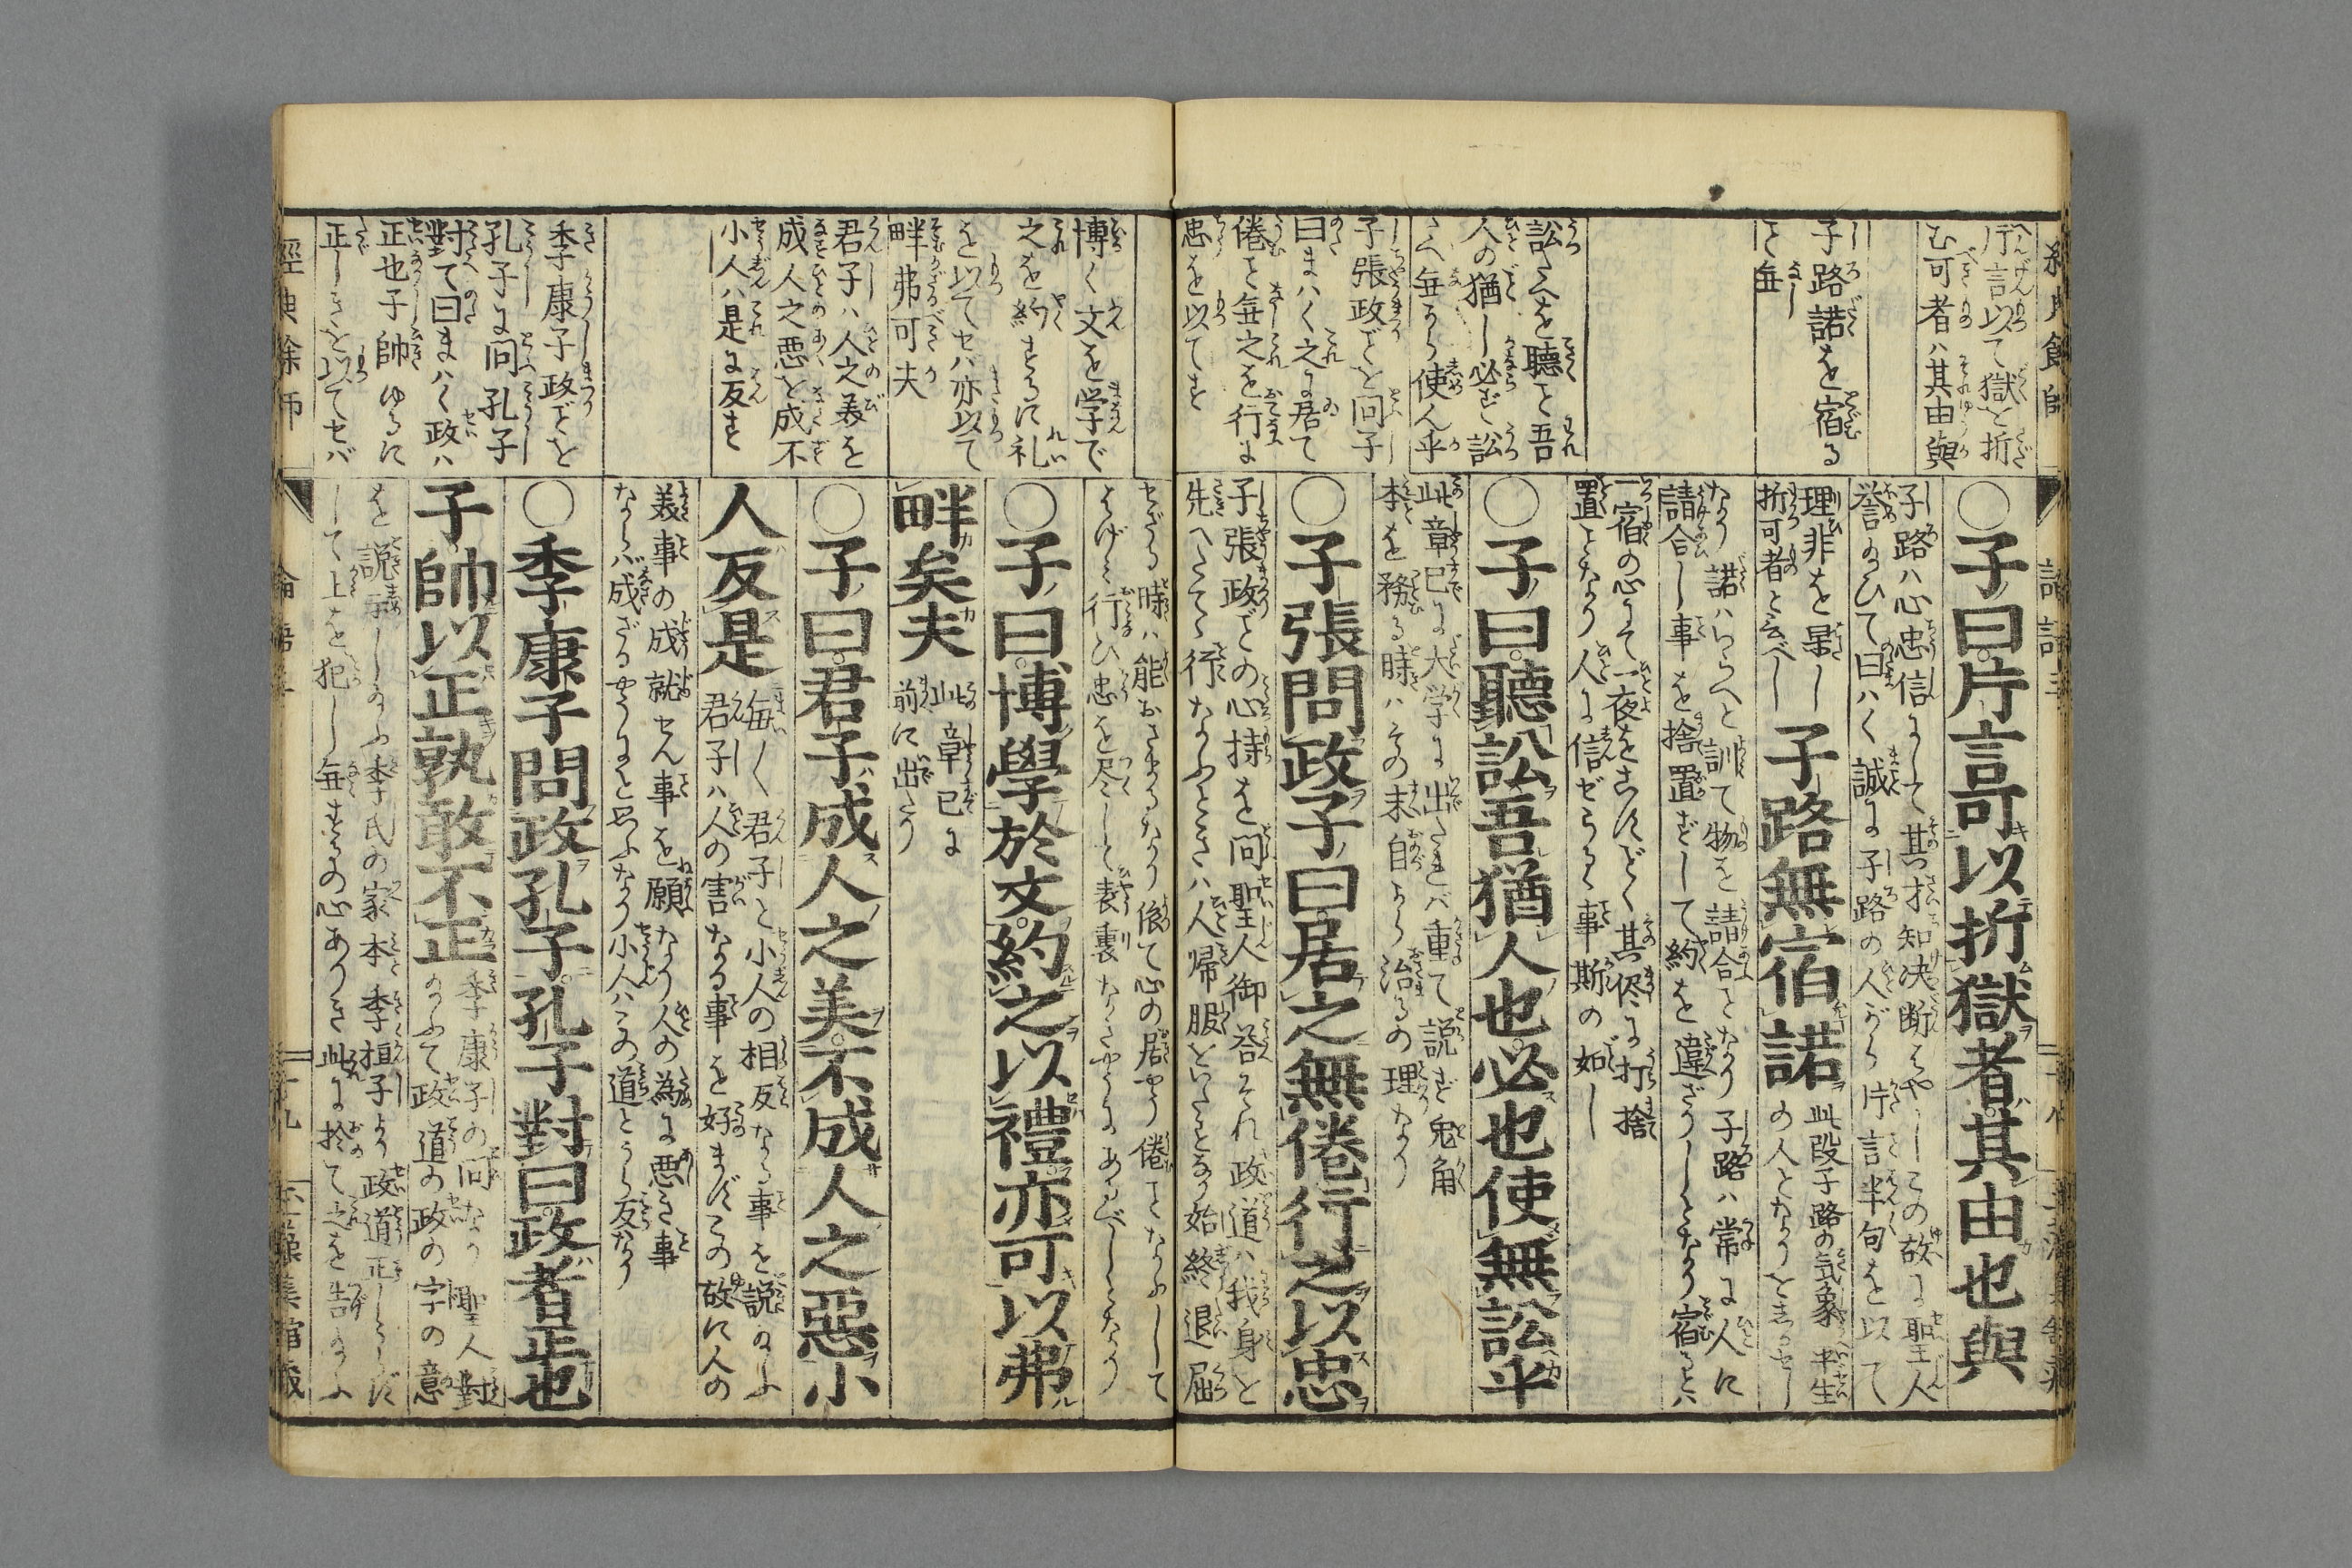 片言以て獄を折
む可者ハ其由與
子路諾を宿る
こと無
訟を聴こと吾
人の猶し必ず訟
さへ無から使ん乎
子張政ごとを問子
曰まハく之に居て
倦こと無之を行に
忠を以てす
○子曰片言可以折獄者其由也與
子路ハ心忠信にして其才知决断はやしこの故に聖人
誉給ひて曰ハく誠に子路の人がら片言半句を以て
理非を杲し
折可者と云べし
子路無宿諾
此段子路の気象平生
の人となりをしるせし
なり諾ハこたへと訓て物を請合となり子路ハ常に人に
請合し事を捨置ずして約を違ざりしとなり宿るとハ
一宿の心にて一夜をこすほどく其侭に打捨
置となり人に信ぜらるゝ事斯の如し
○子曰聽訟吾猶人也必也使無訟乎
此章已に大学に出たれバ重て説ず兎角
本を務る時ハその末自から治るの理なり
○子張問政子曰居之無倦行之以忠
子張政ごとの心持を問聖人御答にそれ政道ハ我身を
先へたてゝ行なふときハ人帰服をいたとなり始終退屈
博く文を学で
之を約するに礼
を以てせハ亦以て
畔弗可夫
君子ハ人之美を
成人之悪を成不
小人ハ是に反す
季康子政ごとを
孔子に問孔子
對て曰まハく政ハ
正也子帥ゆるに
正しきを以てせバ
せざる時ハ能おさまるなり依て心の居やう倦ことなふして
はげミ行ひ忠を尽して表裏なきやうにあるべしとなり
○子曰博學於文約之以禮亦可以弗
畔矣夫
此章已に
前に出たり
○子曰君子成人之美不成人之惡小
人反是
毎〱君子と小人の相反なる事を説給ふ
君子ハ人の害なる事を好まずこの故に人の
美事の成就せん事を願なり人の為に悪き事
ならバ成ざるやうにと思ふなり小人ハこの道とうら反なり
○季康子問政孔子孔子對曰政者正也
子帥以正孰敢不正
季康子の問なり聖人對
給ふて政道の政の字の意
を説示し給ふ季氏の家本季桓子より政道正しからず
して上を犯し無するの心ありき此に於て之を告給ふ
經典餘師